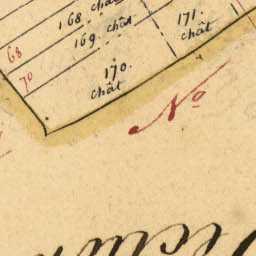 168 chât
171.
chât
169. chât
68
70
170.
chât
No